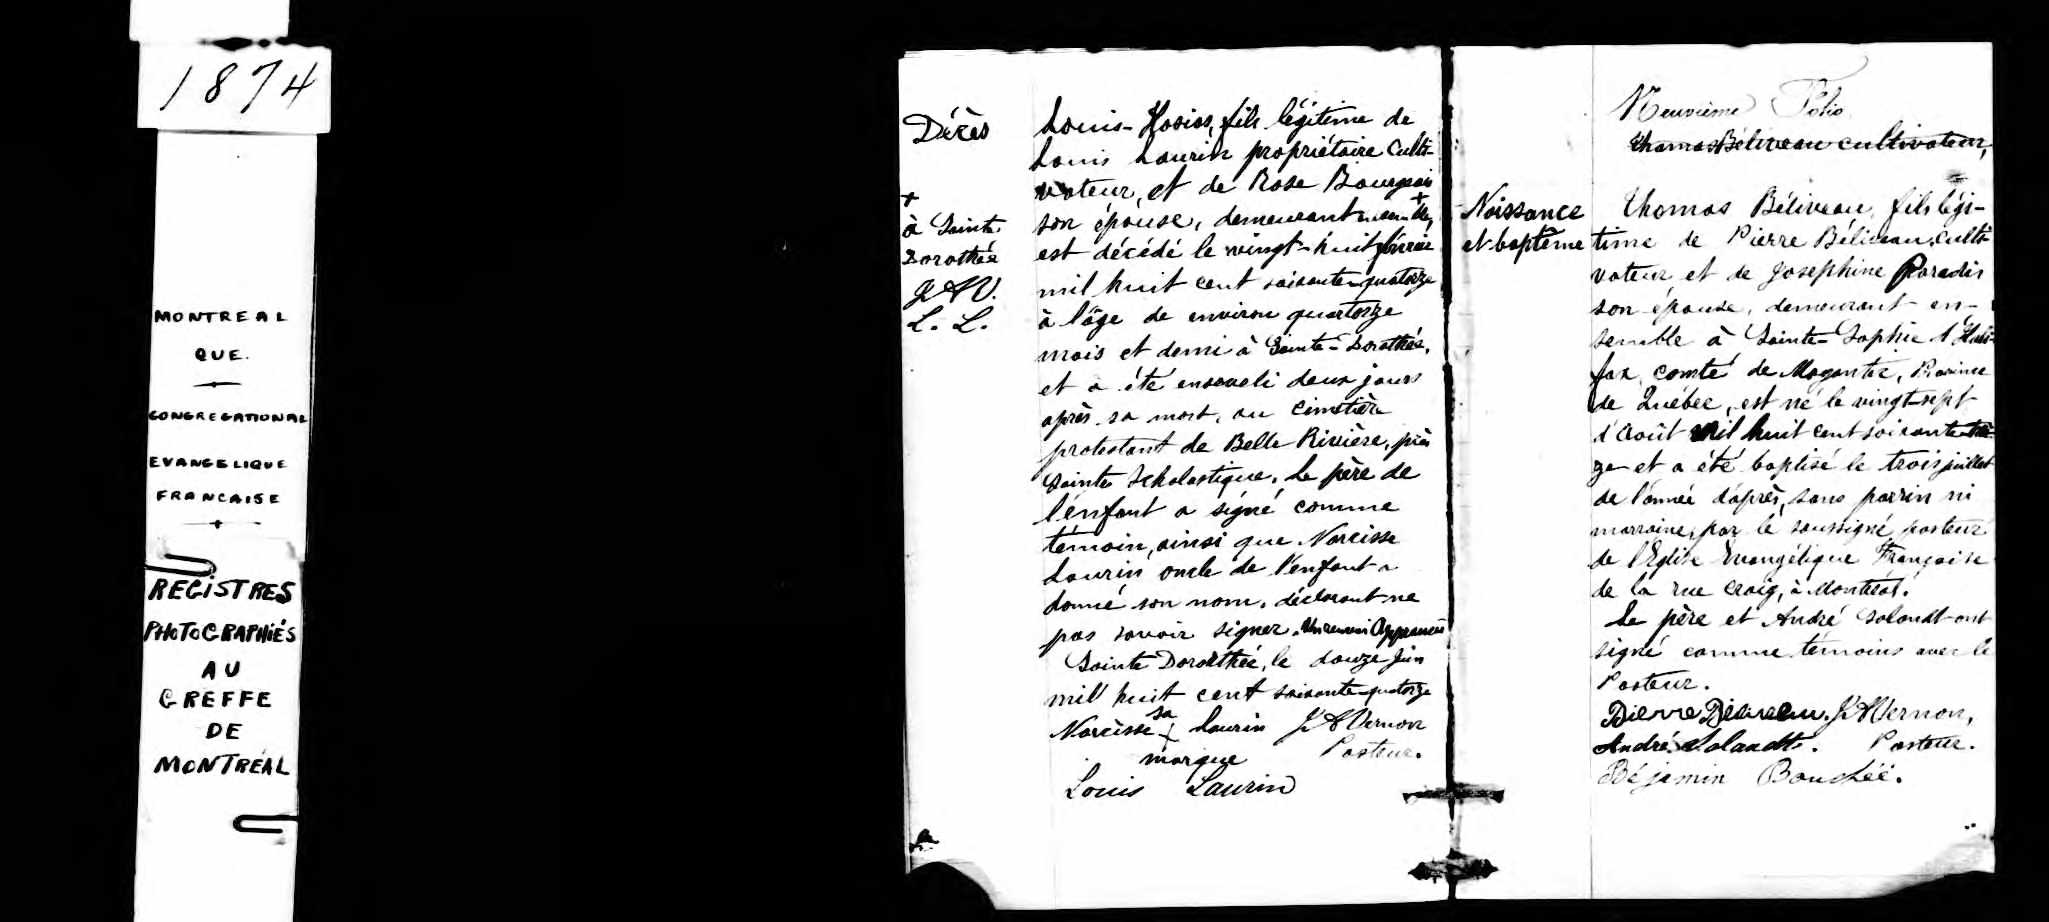 1874
MONTREAL
QUE.
CONGREGATIONAL
EVANGELIQUE
FRANCAISE
REGISTRES
PHOTOGRAPHIÉS
AU
GREFFE
DE
MONTRÉAL
Décès
+
à Sainte
Dorothée
J.A.V.
L. L.
Louis- fils légitime de
Louis Laurin propriétaire culti-
vateur, et de Rose Bourgeois
son épouse, demeurant ensemble, +
est décédé le vingt-huit février
mil huit cent soixante-quatorze
à l'âge de environ quatorze
mois et demi à Sainte-Dorothée,
et a été enseveli deux jours
après sa mort, au cimetière
protestant de Belle Rivière, près
Sainte Scholastique. Le père de
l'enfant a signé comme
témoin, ainsi que Narcisse
Laurin oncle de l'enfant a
donné son nom, déclarant ne
pas savoir signer. Un renvoi approuvé
Sainte Dorothée, le douze juin
mil huit cent soixante-quatorze
Narcisse sa + Laurin J.A. Vernon
marque Pasteur.
Louis Laurin
Neuvième Folio.
Thomas Béliveau cultivateur,
Naissance
et baptême
Thomas Béliveau, fils légi-
time de Pierre Béliveau, culti-
vateur et de Josephine Paradis
son épouse, demeurant en-
semble à Sainte-Sophie d'Hali-
fax, comté de Megantic, Province
de Québec, est né le vingt-sept
d'Août mil huit cent soixante-trei-
ze et a été baptisé le trois juillet
de l'année d'après, sans parrin ni
marraine, par le soussigné, pasteur
de l'Eglise Evangélique Française
de la rue Craig, à Montréal.
Le père et André Solandt ont
signé comme témoins avec le
Pasteur.
Pierre J.A. Vernon,
André Solandt. Pasteur.
Béjamin Bouchéé.